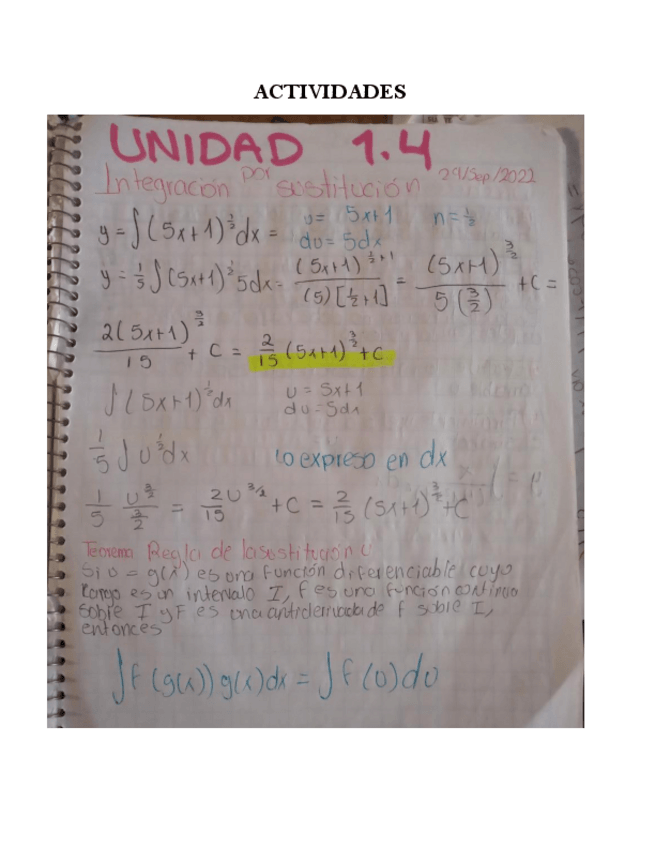 ACTIVIDADES
UNIDAD 1.4
Integración por sustitución 29/Sep/2022
y = ∫(5x+1)^{1/2} dx = u = 5x+1 n = 1/2
du = 5dx
y = 1/5 ∫(5x+1)^{1/2} 5dx = (5x+1)^{1/2+1} / (5)[1/2+1] = (5x+1)^{3/2} / 5(3/2) + C =
2(5x+1)^{3/2} / 15 + C = 2/15 (5x+1)^{3/2} + C
∫(5x+1)^{1/2} dx u = 5x+1
du = 5dx
1/5 ∫ u^{1/2} dx Lo expreso en dx
1/5 u^{3/2} / 3/2 = 2u^{3/2} / 15 + C = 2/15 (5x+1)^{3/2} + C
Teorema Regla de la sustitución
Si u = g(x) es una función diferenciable cuyo
rango es un intervalo I, f es una función continua
sobre I y F es una antiderivada de f sobre I,
entonces
∫f(g(x)) g(x)dx = ∫f(u)du